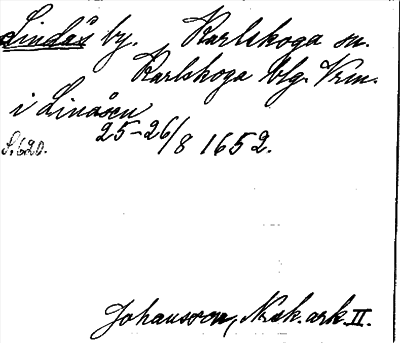 Lindås by. Karlskoga sn.
Karlskoga blg. Vrm.
i Linåsen
25-26/8 1652.
S. 620.
Johansson, Nsk. ark. II.